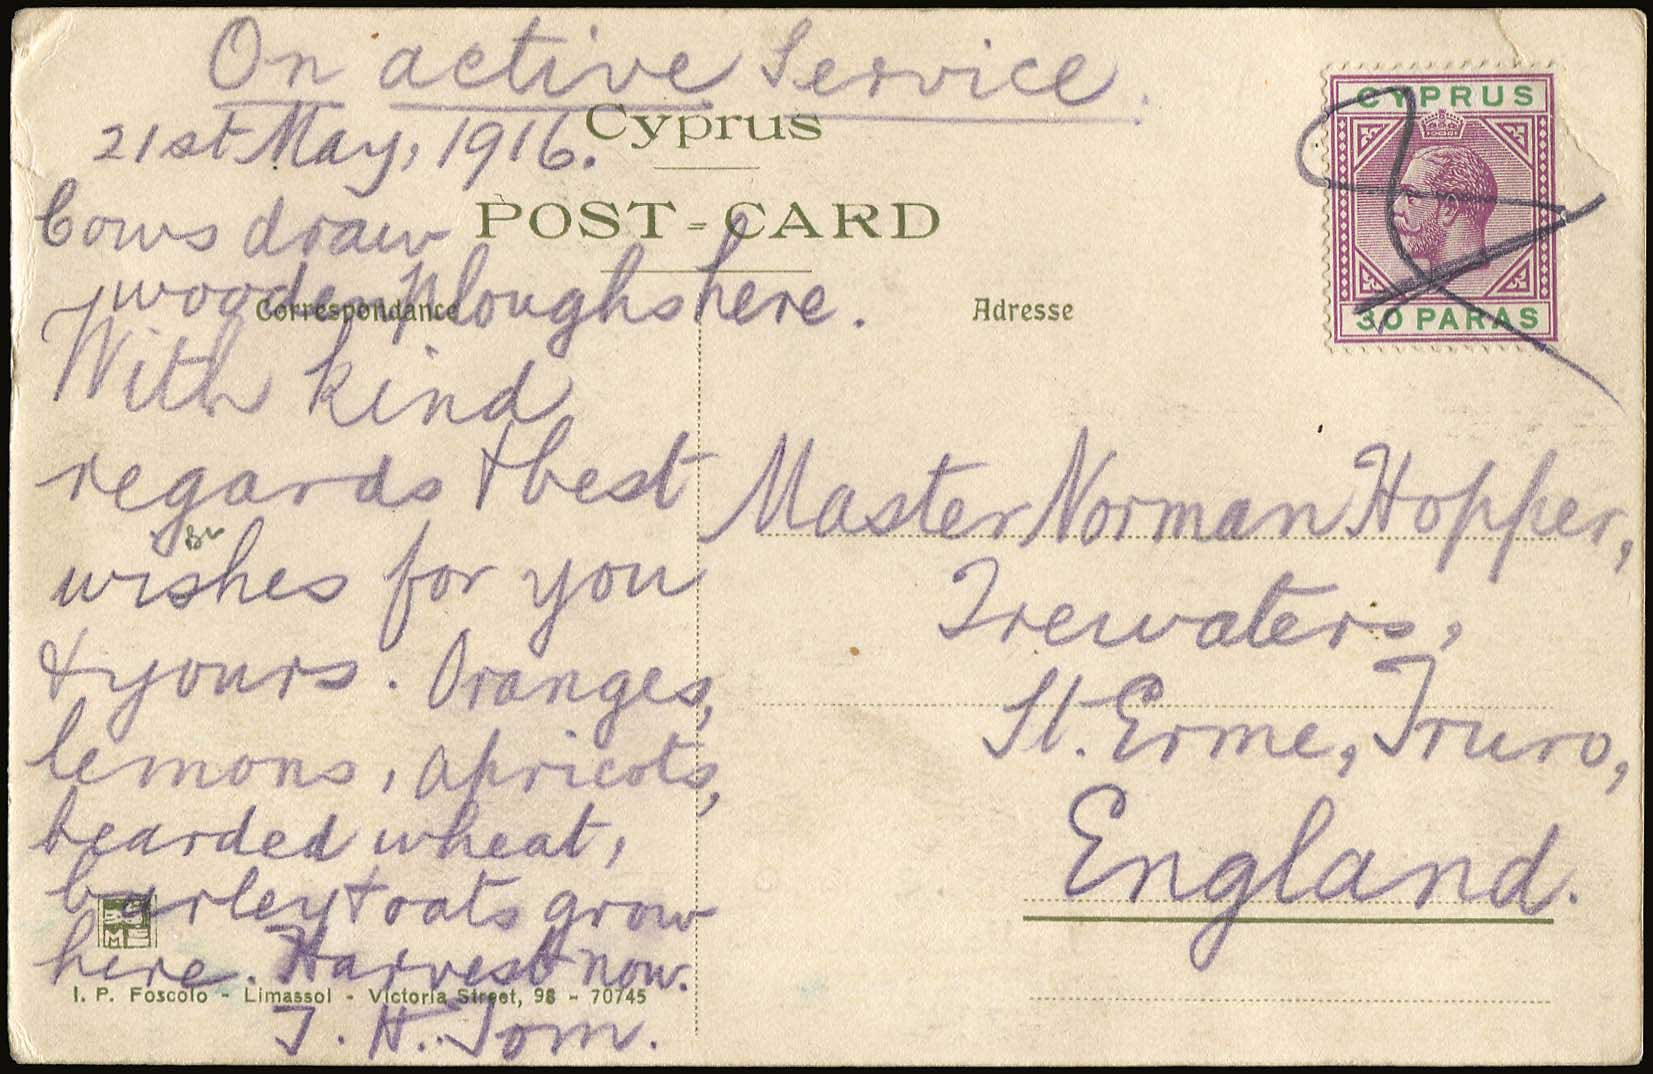 On active Service.
21st May, 1916.
Cyprus
POST-CARD
Cows draw
wooden ploughs here.
Correspondance
Adresse
With kind
regards & best
wishes for you
& yours. Oranges,
lemons, apricots,
bearded wheat,
barley & oats grow
here. Harvest now.
I. P. Foscolo - Limassol - Victoria Street, 98 - 70745
T. H. Tom.
CYPRUS
30 PARAS
Master Norman Hopper,
Trewaters,
St. Erme, Truro,
England.